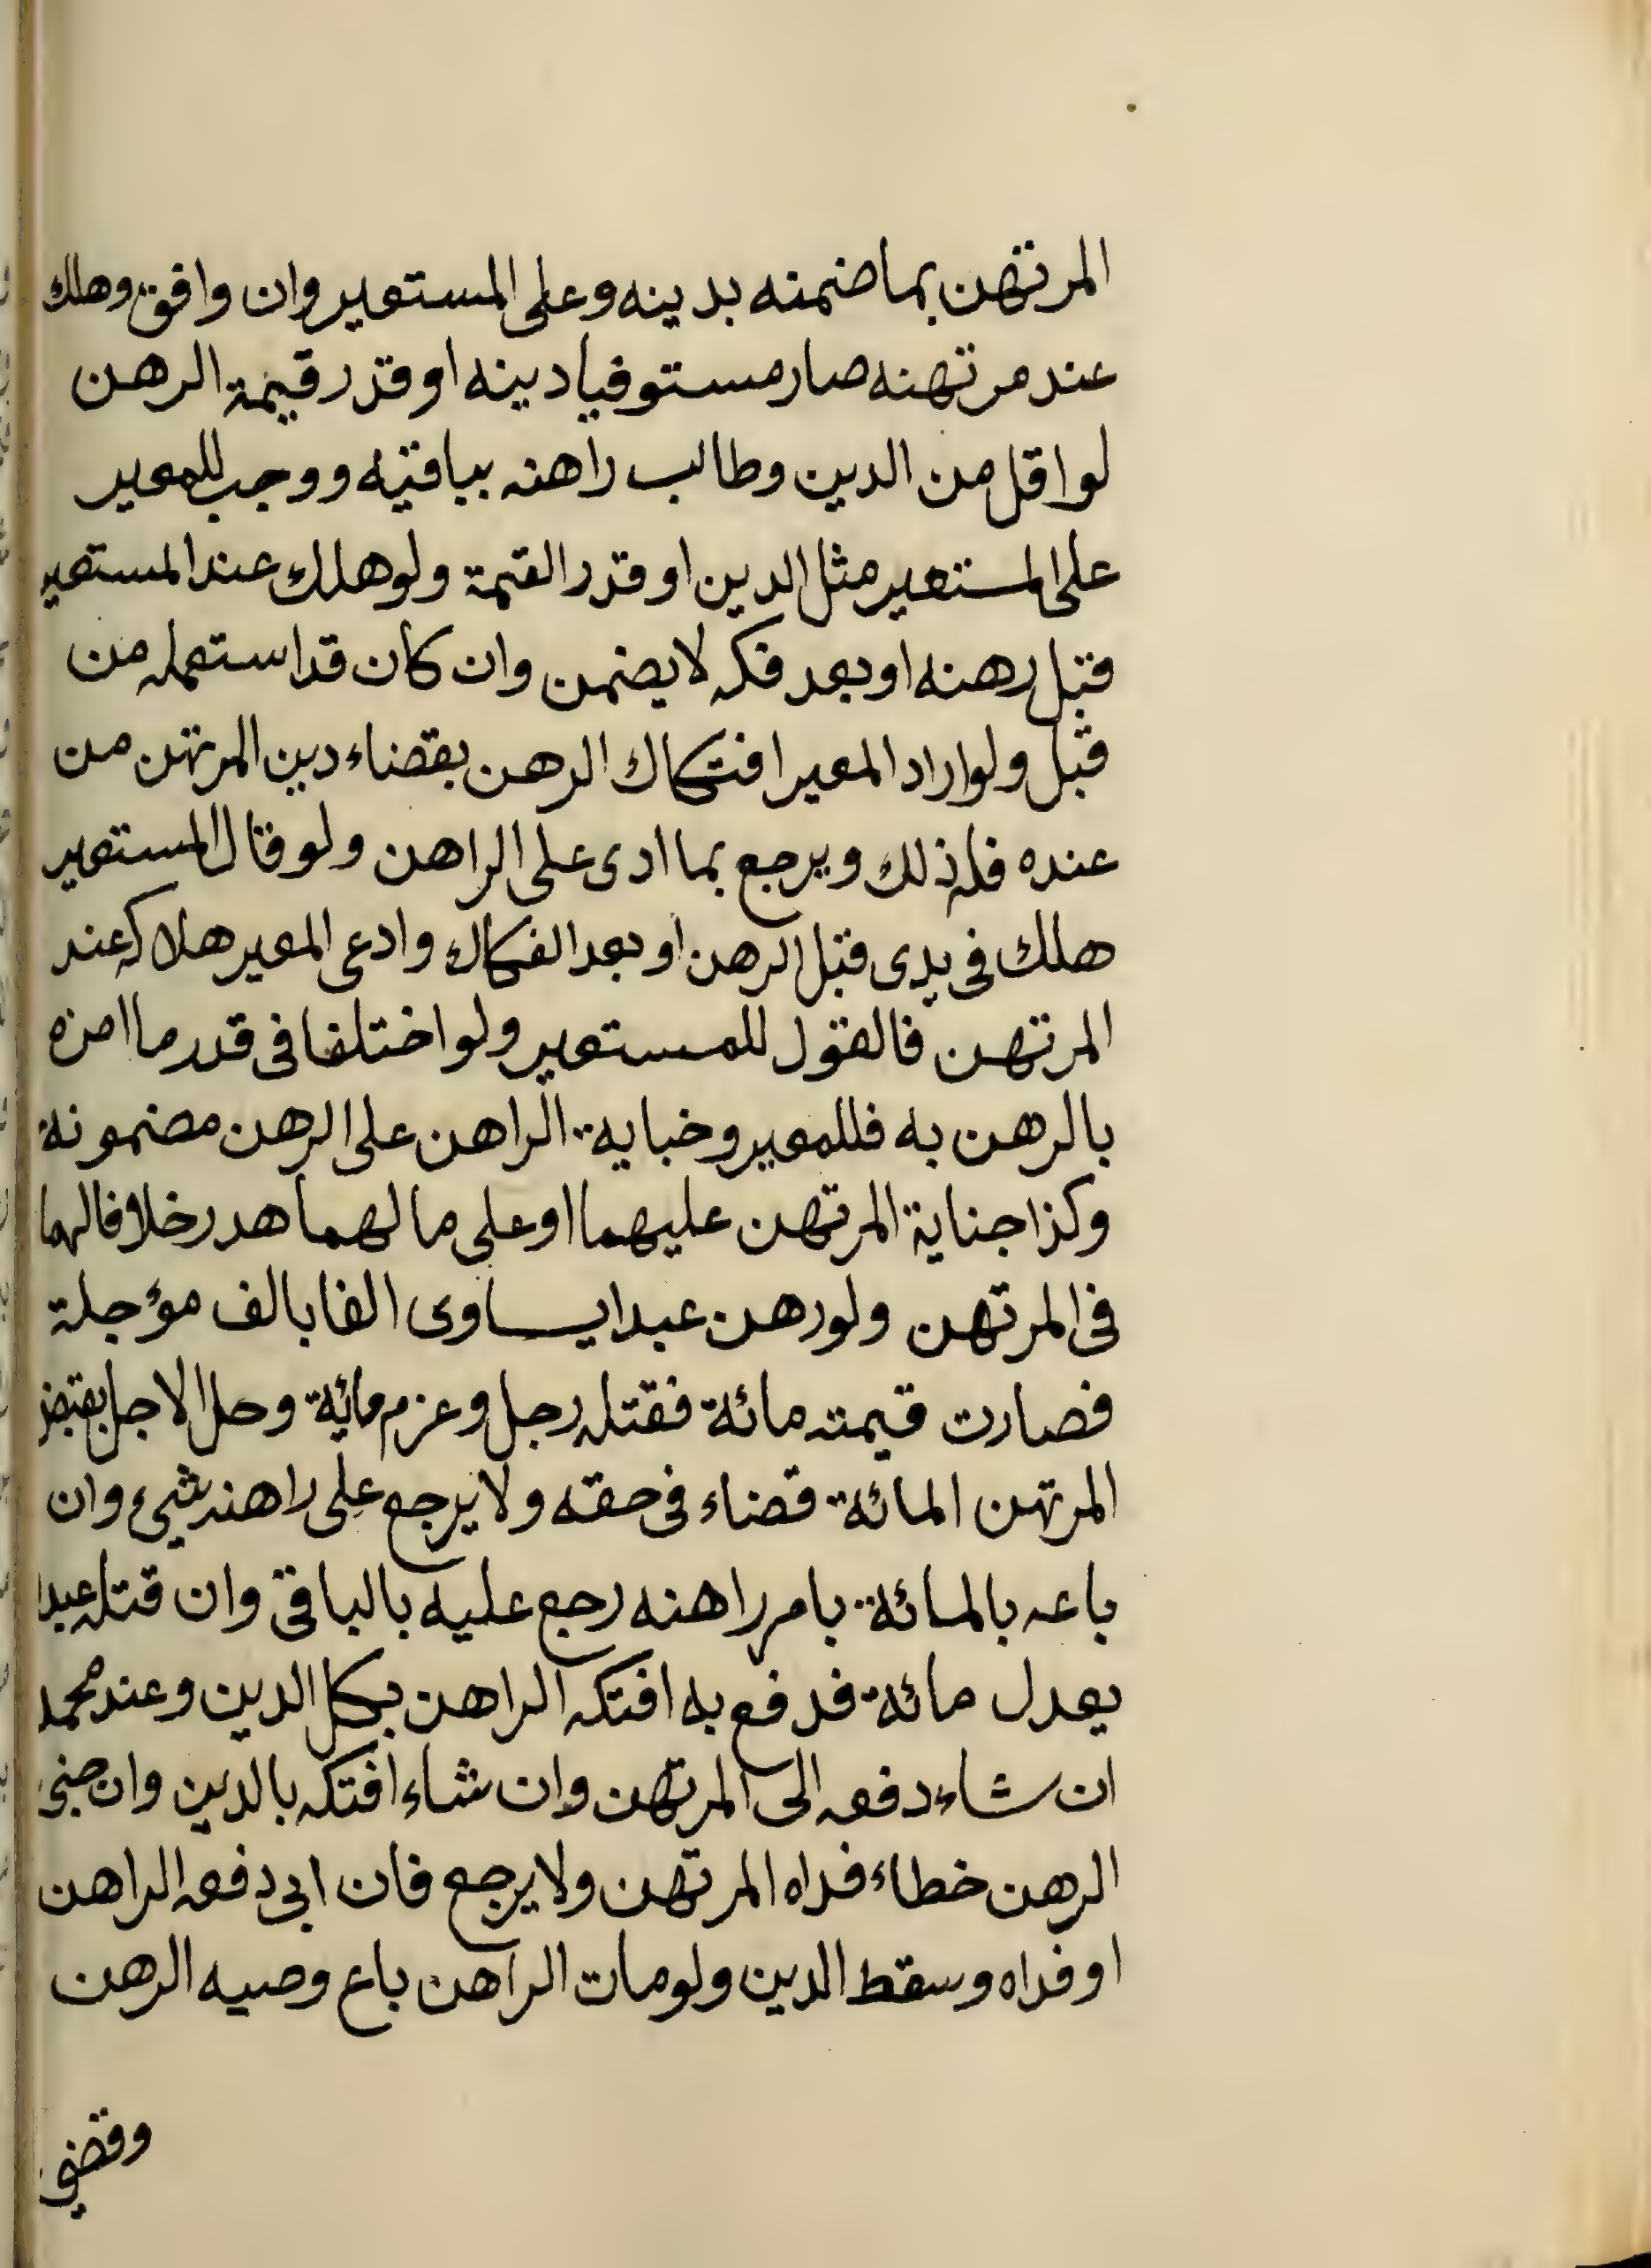 المرتهن بما ضمنه بدينه وعلى المستعير وان وافق وهلك
عند مرتهنه صار مستوفيا دينه او قدر قيمة الرهن
لو اقل من الدين وطالب راهنه بباقيه ووجب للمعير
على المستعير مثل الدين او قدر القيمة ولو هلك عند المستعير
قبل رهنه او بعد فكه لا يضمن وان كان قد استعمله من
قبل ولو اراد المعير افتكاك الرهن بقضاء دين المرتهن من
عنده فله ذلك ويرجع بما ادى على الراهن ولو قال المستعير
هلك فى يدى قبل الرهن او بعد الفكاك وادعى المعير هلاكه عند
المرتهن فالقول للمستعير ولو اختلفا فى قدر ما امره
بالرهن به فللمعير وخباية الراهن على الرهن مضمونة
وكذا جناية المرتهن عليهما او على مالهما هدر خلافا لهما
فى المرتهن ولو رهن عبدا يساوى الفا بالف مؤجلة
فصارت قيمته مائة فقتله رجل وعزم مائة وحل الاجل يقبض
المرتهن المائة قضاء فى حقه ولا يرجع على راهنه شيء وان
باعه بالمائة بامر راهنه رجع عليه بالباقى وان قتله عبد
يعدل مائة فدفع به افتكه الراهن بكل الدين وعند محمد
ان شاء دفعه الى المرتهن وان شاء افتكه بالدين وان جنى
الرهن خطاء فداه المرتهن ولا يرجع فان ابى دفعه الراهن
او فداه وسقط الدين ولو مات الراهن باع وصيه الرهن
وقضى